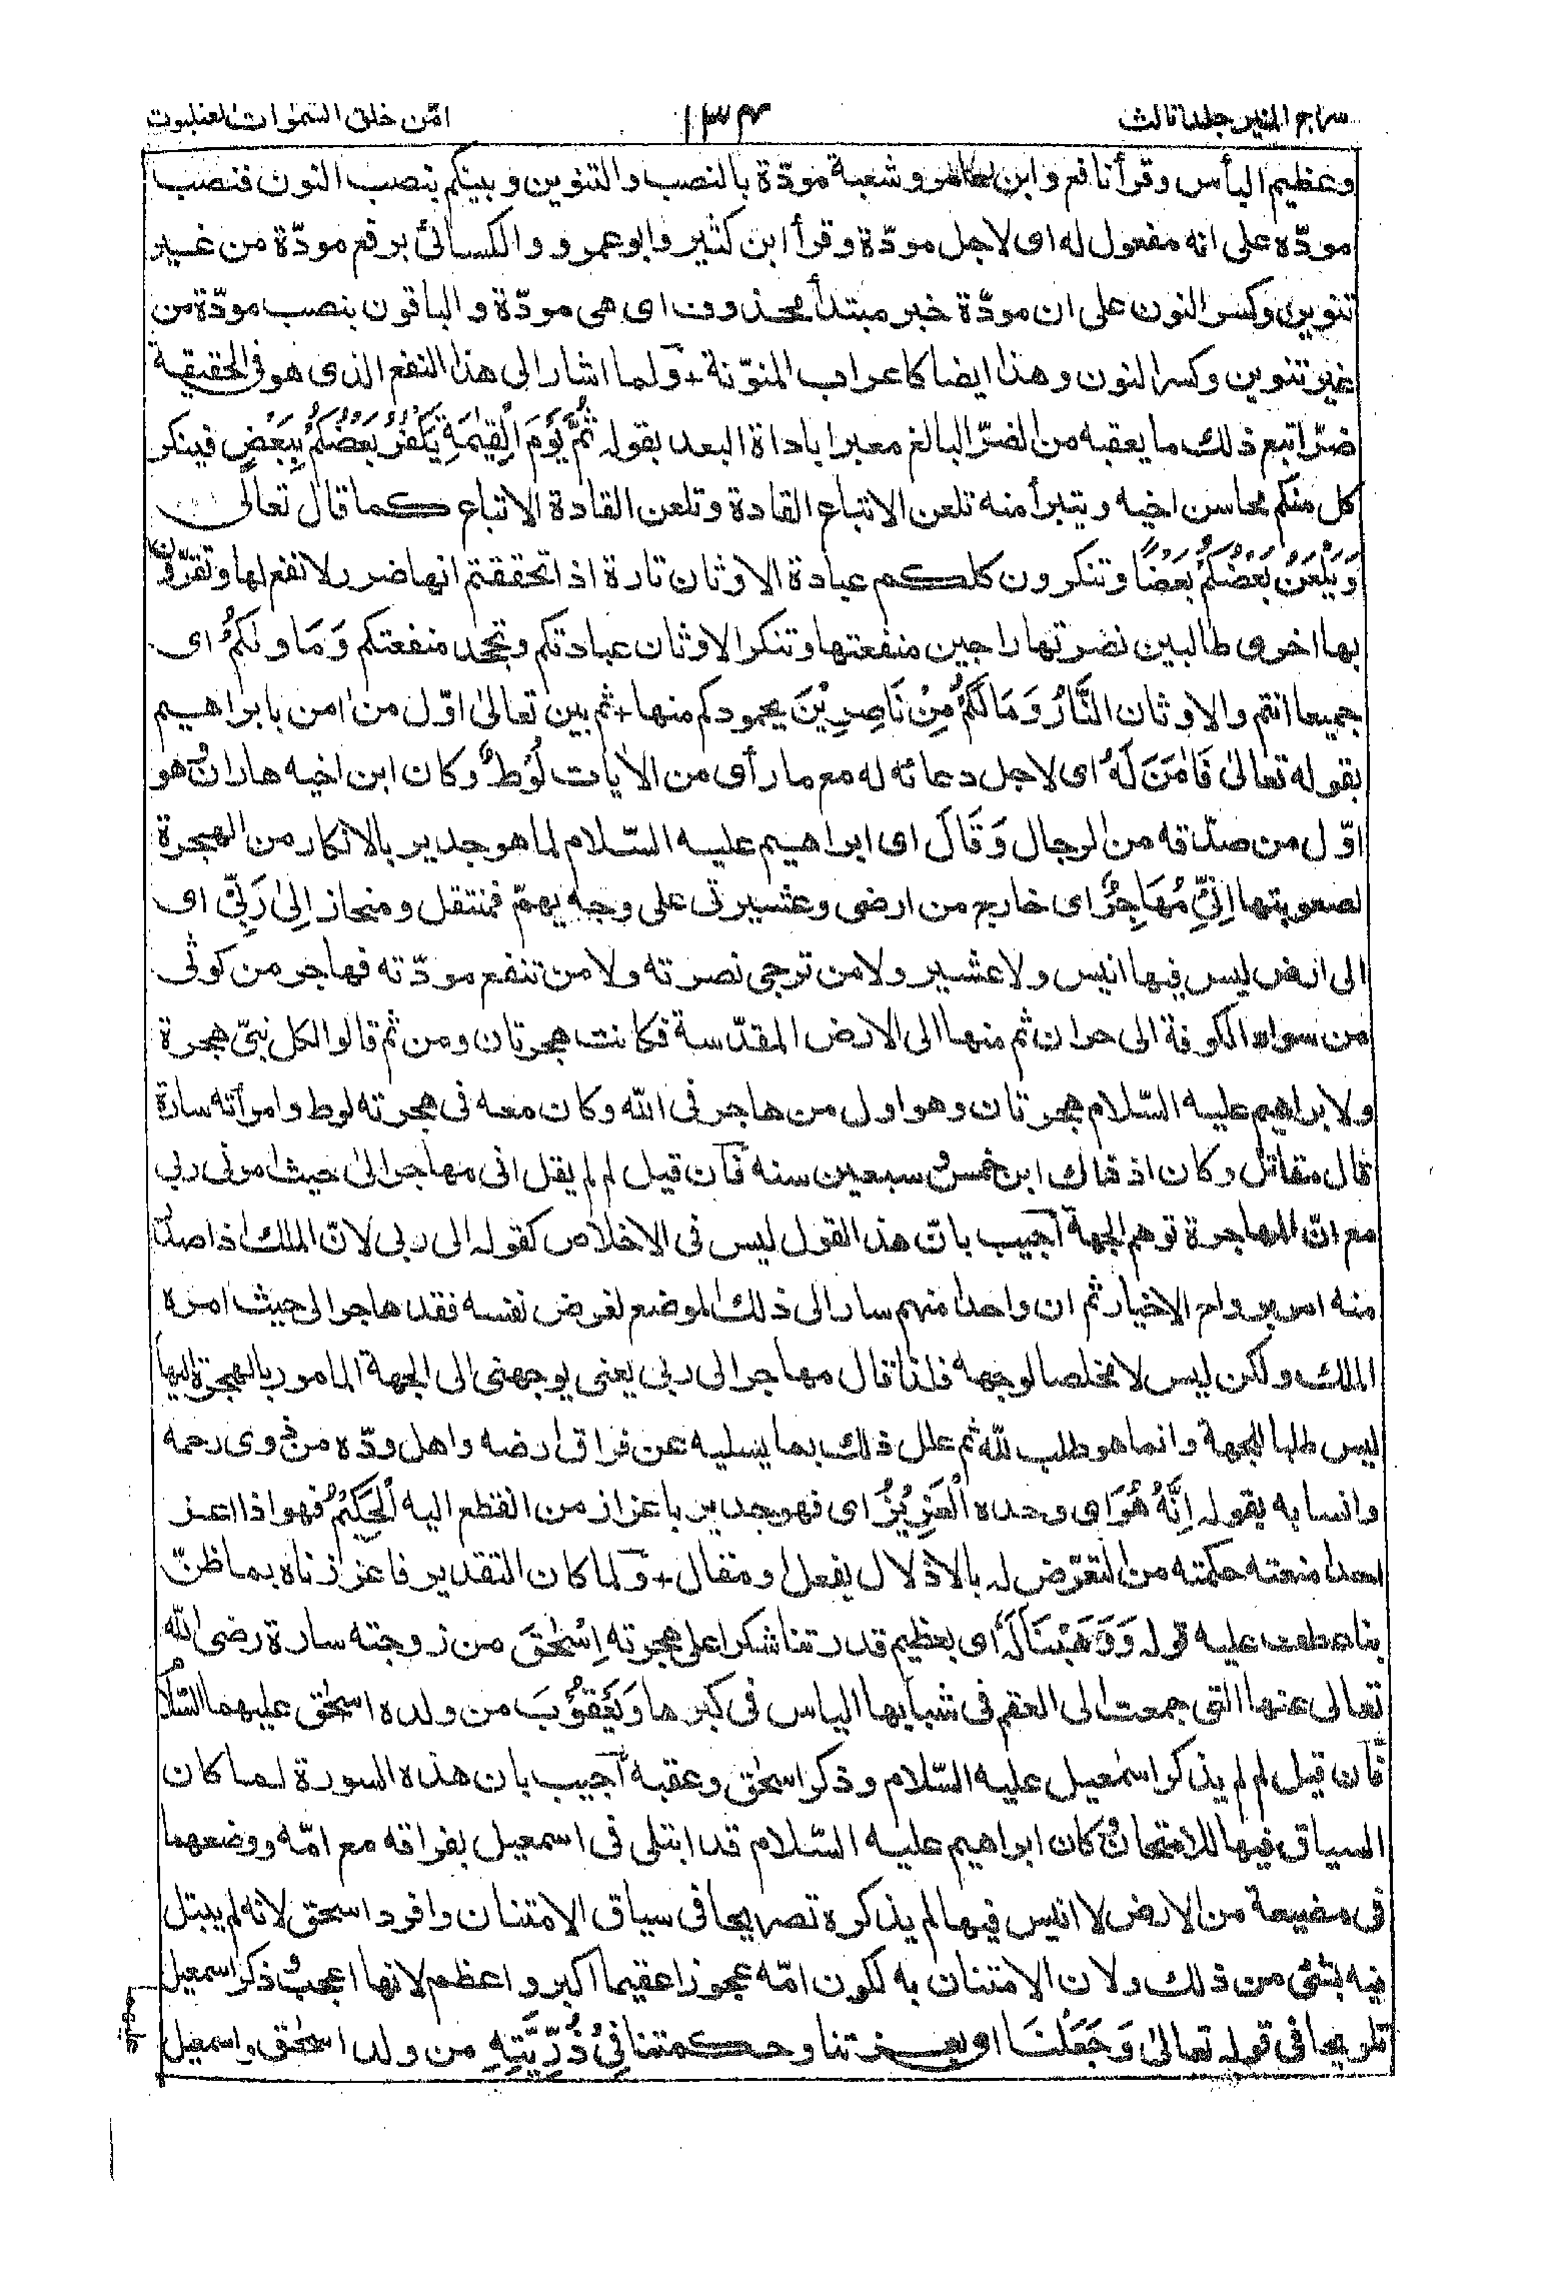 سراج المنير جلد ثالث
١٣٤
امّن خلق السمٰوات العنكبوت
وعظيم البأس وقرأ نافع وابن عامر وشعبة مودّة بالنصب والتنوين وبينكم بنصب النون فنصب
مودّه على انه مفعول له اى لاجل مودّة وقرأ ابن كثير وابو عمرو والكسائى برفع مودّة من غير
تنوين وكسر النون على ان مودّة خبر مبتدأ محذوف اى هى مودّة والباقون بنصب مودّة من
غير تنوين وكسر النون وهذا ايضا كاعراب المنوّنة + ولما اشار الى هذا النفع الذى هو فى الحقيقة
ضرّ اتبع ذلك ما يعقبه من الضرّ البالغ معبرا باداة البعد بقوله ثُمَّ يَوْمَ الْقِيٰمَةِ يَكْفُرُ بَعْضُكُمْ بِبَعْضٍ فينكر
كل منكم محاسن اخيه ويتبرأ منه تلعن الاتباع القادة وتلعن القادة الاتباع كما قال تعالى
وَيَلْعَنُ بَعْضُكُمْ بَعْضًا وتنكرون كلكم عبادة الاوثان تارة اذا تحققتم انها ضرر لا نفع لها وتقرّون
بها اخرى طالبين نصرتها راجين منفعتها وتنكر الاوثان عبادتكم وتجحد منفعتكم وَمَاوٰىكُمْ اى
جميعا انتم والاوثان النَّارُ وَمَا لَكُمْ مِنْ نَاصِرِيْنَ يحمونكم منها + ثم بين تعالىٰ اوّل من اٰمن بابراهيم
بقوله تعالىٰ فَاٰمَنَ لَهٗ اى لاجل دعائه له مع ما رأى من الاٰيات لُوْطٌ وكان ابن اخيه هاران وهو
اوّل من صدّقه من الرجال وَقَالَ اى ابراهيم عليه السّلام لما هو جدير بالانكار من الهجرة
لصعوبتها اِنِّيْ مُهَاجِرٌ اى خارج من ارضى وعشيرتى على وجه يهمّ فمنتقل ومنحاز اِلىٰ رَبِّيْ اى
الى ارض ليس فيها انيس ولا عشير ولا من ترجى نصرته ولا من تنفع مودّته فهاجر من كوثى
من سواد الكوفة الى حران ثم منها الى الارض المقدّسة فكانت هجرتان ومن ثم قالوا لكل نبىّ هجرة
ولابراهيم عليه السّلام هجرتان وهو اول من هاجر فى الله وكان معه فى هجرته لوط وامرأته سارة
قال مقاتل وكان اذ ذاك ابن خمس وسبعين سنه فآن قيل لم لم يقل انى مهاجر الىٰ حيث امرنى ربى
مع انّ المهاجرة توهم الجهة اجيب بانّ هذا القول ليس فى الاخلاص كقوله الى ربى لانّ الملك اذا صدر
منه امر برواح الاخيار ثم ان واحدا منهم سار الى ذلك الموضع لغرض نفسه فقد هاجر الى حيث امره
الملك ولكن ليس لا مخلصا لوجهه فلذا قال مهاجر الى ربى يعنى بوجهتى الى الجهة المامور بالهجرة اليها
ليس طلبا للجهة وانما هو طلب للّه ثم علل ذلك بما يسليه عن فراق ارضه واهل ودّه من ذوى رحمه
وانسابه بقوله اِنَّهٗ هُوَ اى وحده الْعَزِيْزُ اى فهو جدير باعزاز من انقطع اليه الْحَكِيْمُ فهو اذا اعز
احدا منعته حكمته من التعرّض له بالاذلال بفعل او مقال + ولما كان التقدير فاعززناه بما ظنّ
بنا عطف عليه قوله وَوَهَبْنَا لَهٗ اى بعظيم قدرتنا شكرا على هجرته اِسْحٰقَ من زوجته سارة رضى الله
تعالى عنها التى جمعت الى العقم فى شبابها الياس فى كبرها وَيَعْقُوْبَ من ولده اسحٰق عليهما السّلام
فآن قيل لم لم يذكر اسمٰعيل عليه السّلام وذكر اسحٰق وعقبه اجيب بان هذه السورة لما كان
السياق فيها للامتحان وكان ابراهيم عليه السّلام قد ابتلى فى اسمعيل بفراقه مع امّه ووضعهما
فى مضيعة من الارض لا انيس فيها لم يذكره تصريحا فى سياق الامتنان وافرد اسحٰق لانه لم يبتل
فيه بشئ من ذلك ولان الامتنان به لكون امّه عجوزا عقيما اكبر واعظم لانها اعجب وذكر اسمعيل
تلويحا فى قوله تعالىٰ وَجَعَلْنَا اى بعزتنا وحكمتنا فِيْ ذُرِّيَّتِهٖ من ولد اسحٰق واسمعيل